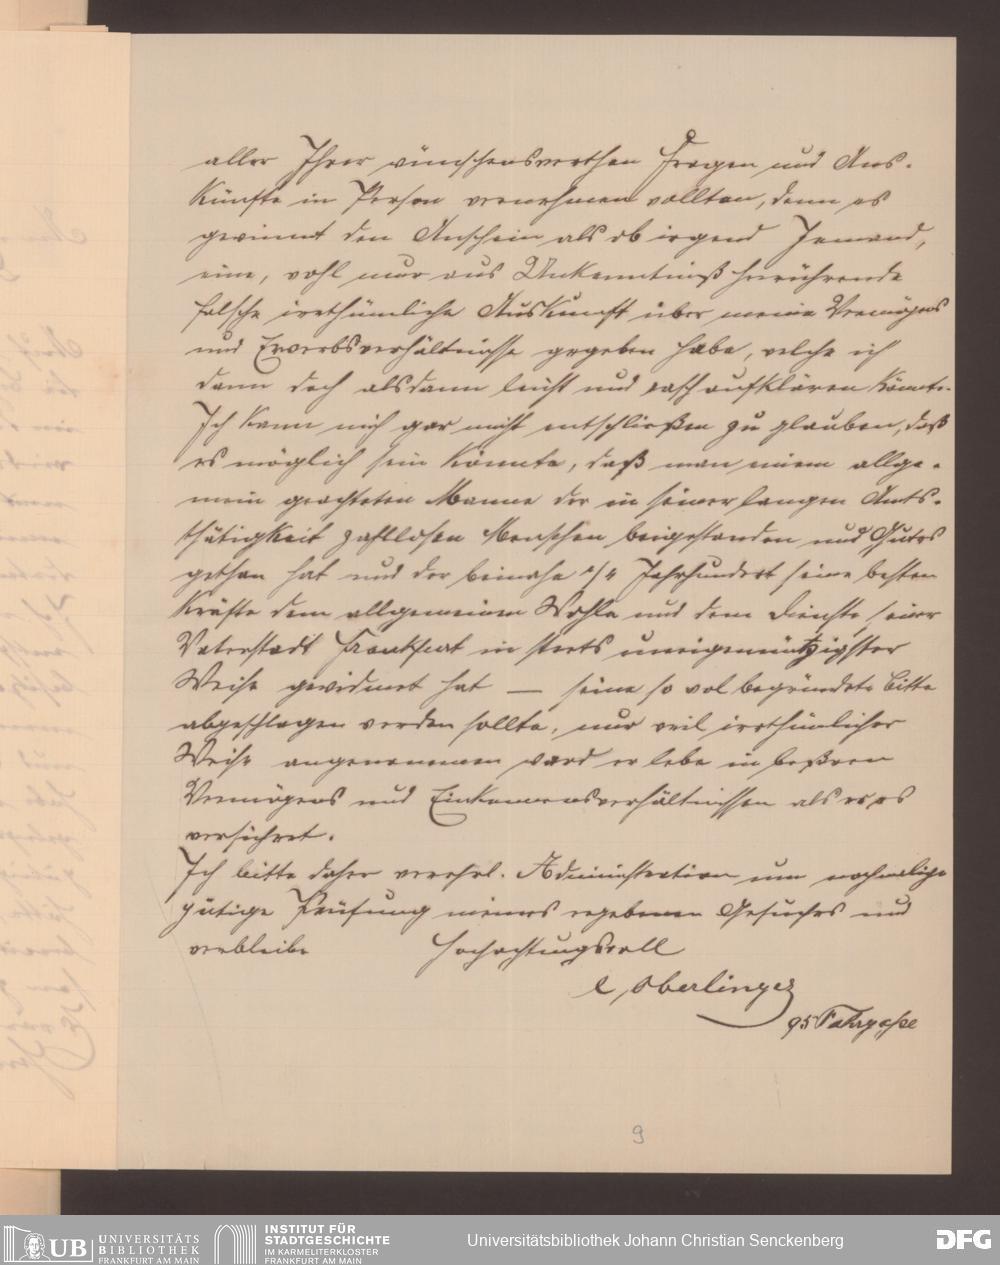 aller Ihrer wünschenswerthen Fragen und Aus-
künfte in Person vernehmen wollten, denn es
gewinnt den Anschein als ob irgend Jemand,
eine, wohl nur aus Unkenntniß herrührende
falsche irrthümliche Auskunft über meine Vermögens
und Erwerbsverhältnisse gegeben habe, welche ich
dann doch alsdann leicht und rasch aufklären könnte.
Ich kann mich gar nicht entschließen zu glauben, daß
es möglich sein könnte, daß man einem allge-
mein geachteten Manne der in seiner langen Amts-
thätigkeit zahllosen Menschen beigestanden und Gutes
gethan hat und der beinahe /4 Jahrhundert seine besten
Kräfte dem allgemeinen Wohle und dem Dienste seiner
Vaterstadt Frankfurt in stets uneigennützigster
Weise gewidmet hat — seine so wol begründete Bitte
abgeschlagen werden sollte, nur weil irrthümlicher
Weise angenommen ward er lebe in beßren
Vermögens und Einkommensverhältnissen als er es
versichret.
Ich bitte daher verehrl. Administration um nochmalige
gütige Prüfung meines ergebenen Gesuches und
verbleibe Hochachtungsvoll
C. Oberlinger
95 Fahrgasse
9
UB UNIVERSITÄTS
BIBLIOTHEK
FRANKFURT AM MAIN
INSTITUT FÜR
STADTGESCHICHTE
IM KARMELITERKLOSTER
FRANKFURT AM MAIN
Universitätsbibliothek Johann Christian Senckenberg
DFG